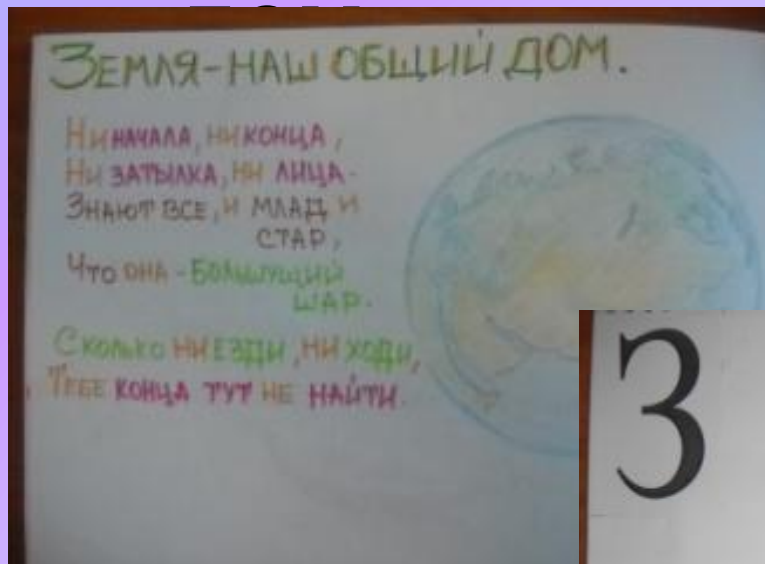 ЗЕМЛЯ-НАШ ОБЩИЙ ДОМ.
НИ НАЧАЛА, НИ КОНЦА,
НИ ЗАТЫЛКА, НИ ЛИЦА-
ЗНАЮТ ВСЕ, И МЛАД И
СТАР,
ЧТО ОНА-БОЛЬШУЩИЙ
ШАР.
СКОЛЬКО НИ ЕЗДИ, НИ ХОДИ,
ТЕБЕ КОНЦА ТУТ НЕ НАЙТИ.
З